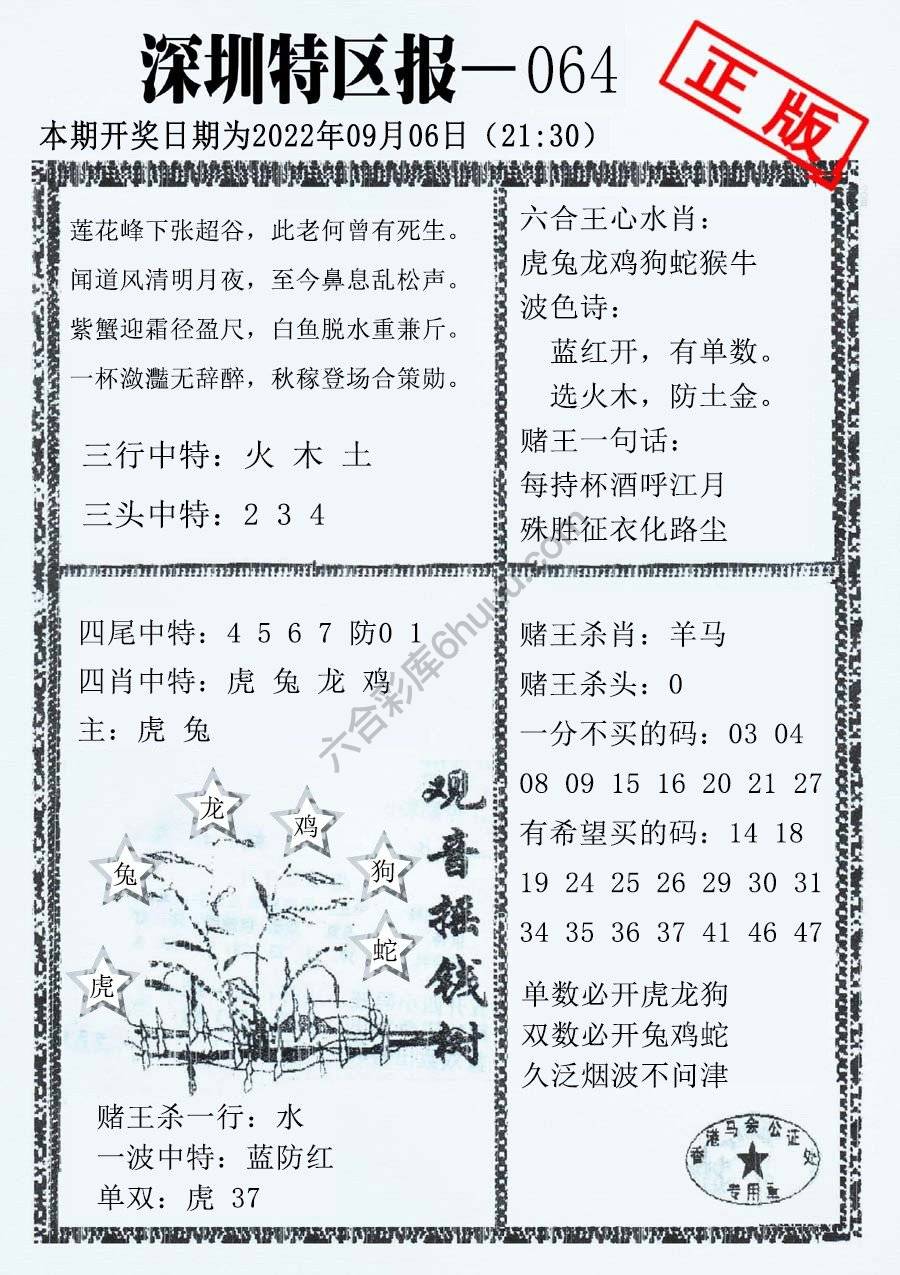 深圳特区报—064
正版
本期开奖日期为2022年09月06日（21:30）
莲花峰下张超谷，此老何曾有死生。
闻道风清明月夜，至今鼻息乱松声。
紫蟹迎霜径盈尺，白鱼脱水重兼斤。
一杯潋灩无辞醉，秋稼登场合策勋。
三行中特：火 木 土
三头中特：2 3 4
六合王心水肖：
虎兔龙鸡狗蛇猴牛
波色诗：
蓝红开，有单数。
选火木，防土金。
赌王一句话：
每持杯酒呼江月
殊胜征衣化路尘
四尾中特：4 5 6 7 防0 1
四肖中特：虎 兔 龙 鸡
主：虎 兔
龙
鸡
兔
狗
蛇
虎
观音摇钱树
赌王杀一行：水
一波中特：蓝防红
单双：虎 37
赌王杀肖：羊马
赌王杀头：0
一分不买的码：03 04
08 09 15 16 20 21 27
有希望买的码：14 18
19 24 25 26 29 30 31
34 35 36 37 41 46 47
单数必开虎龙狗
双数必开兔鸡蛇
久泛烟波不问津
香港马会公证处
专用章
六合彩库6huuu.com